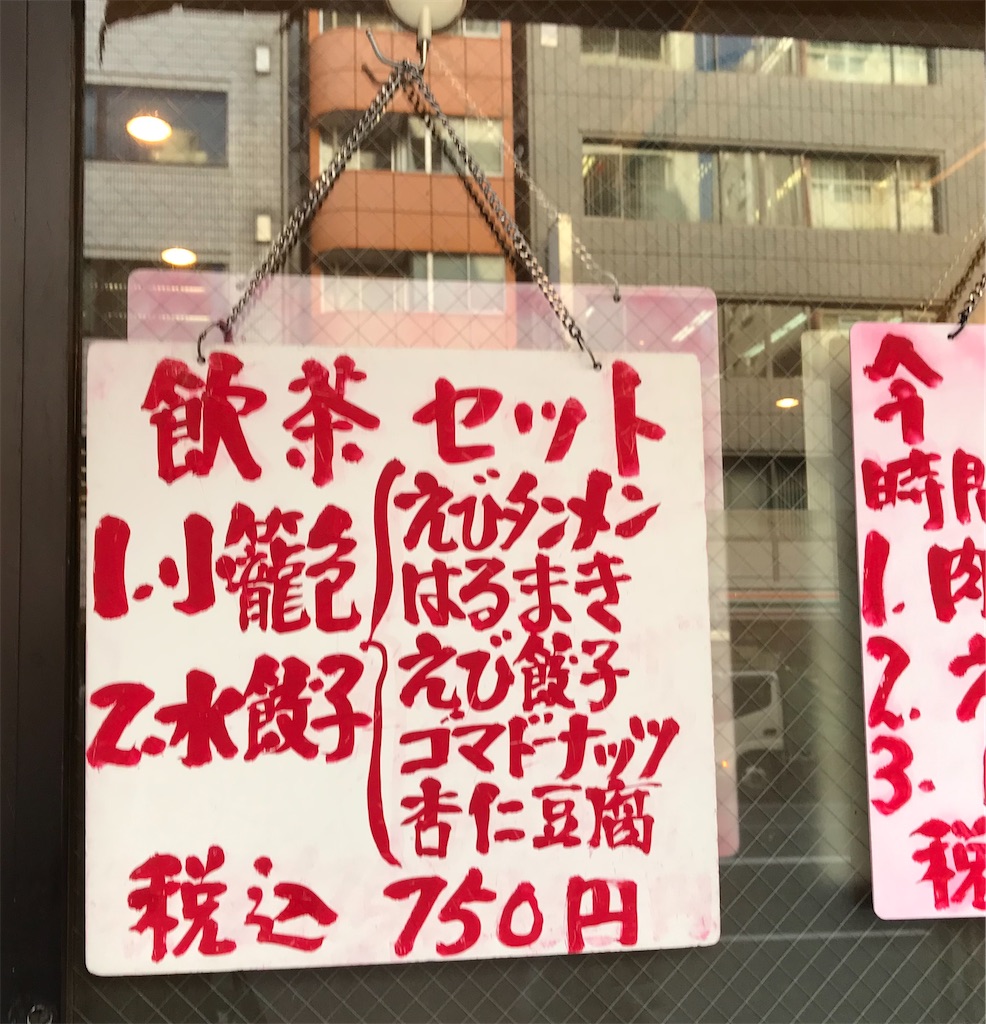 飲茶セット
1.小籠包
2.水餃子
えびタンメン
はるまき
えび餃子
ゴマドーナッツ
杏仁豆腐
税込 750円
今
時間
1. 肉
2.
3.
税